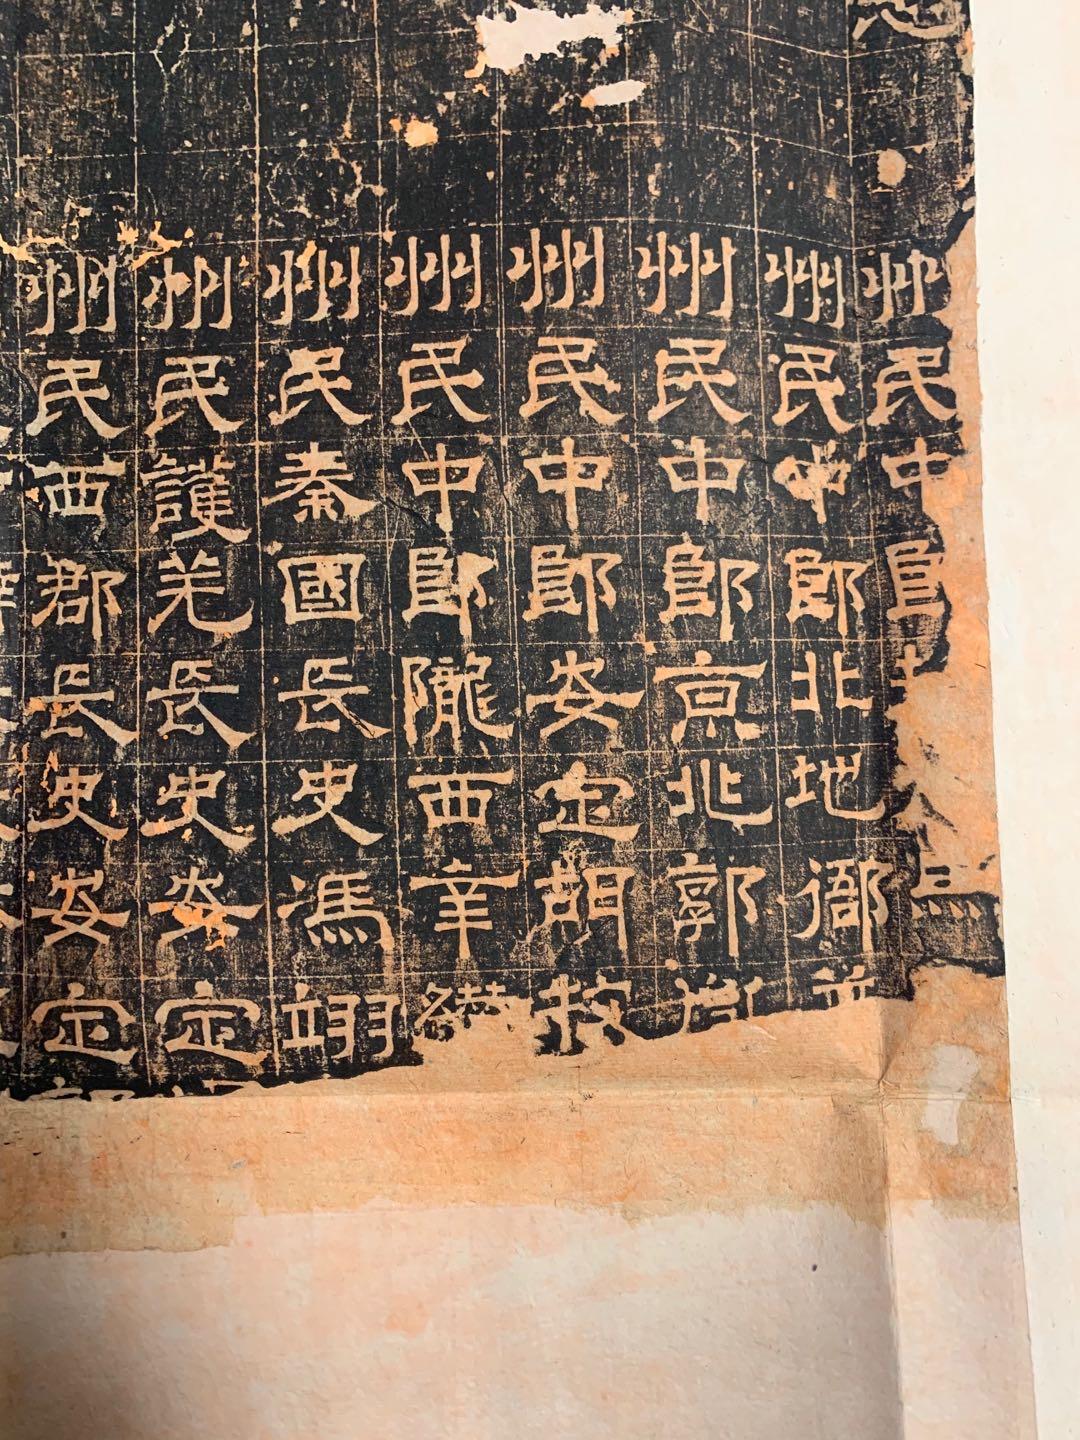 州民中郎
州民中郎北地衙
州民中郎京兆郭
州民中郎安定胡牧
州民中郎隴西辛
州民秦國長史馮翊
州民護羌長史安定
州民西郡長史安定